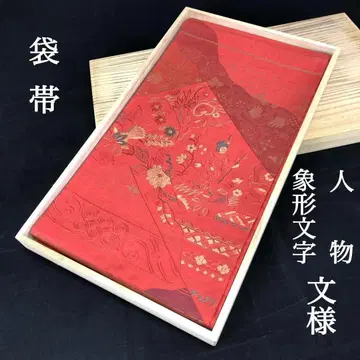 袋帯
人物
象形文字
文様